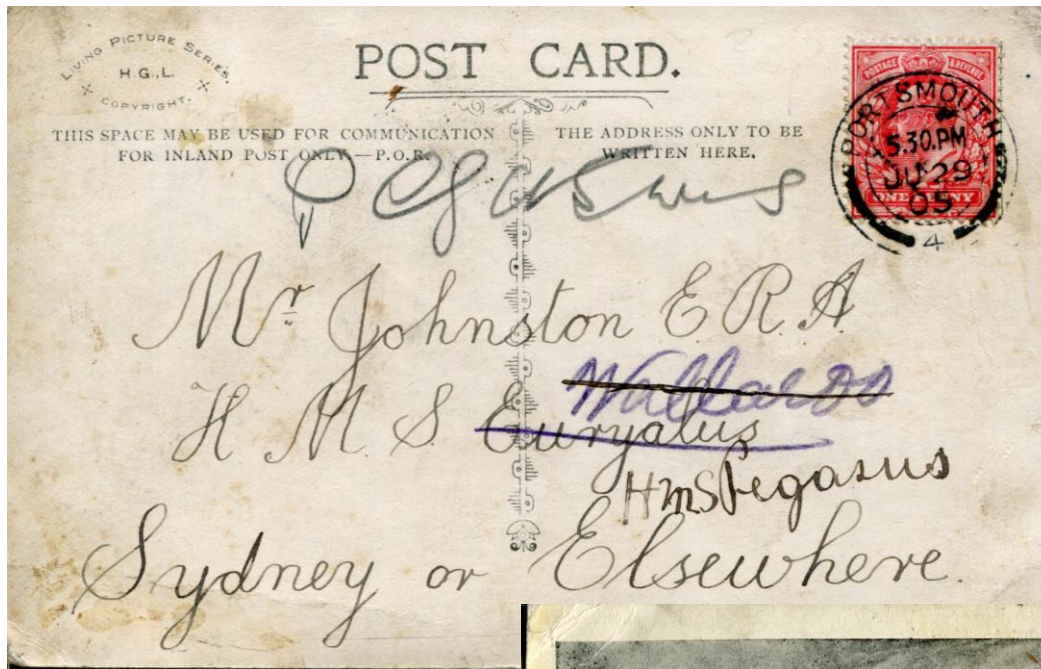 LIVING PICTURE SERIES.
H.G.,L.
COPYRIGHT.
POST CARD.
THIS SPACE MAY BE USED FOR COMMUNICATION
FOR INLAND POST ONLY.—P.O.R.
THE ADDRESS ONLY TO BE
WRITTEN HERE.
POSTAGE & REVENUE
ONE PENNY
PORTSMOUTH
5.30.PM
JU 29
05
4
Pegasus
Mr Johnston E.R.A
H M S Euryalus
Wallaroo
HMS Pegasus
Sydney or Elsewhere.